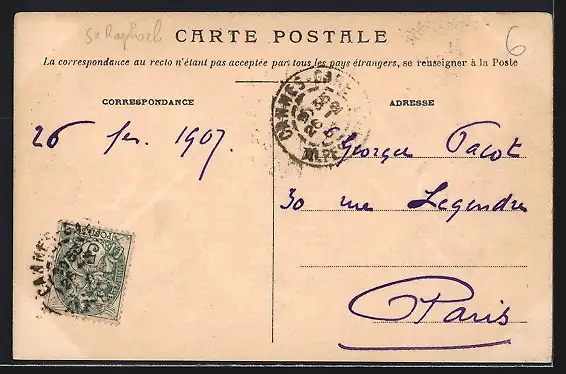 St Raphael
6
CARTE POSTALE
La correspondance au recto n'étant pas acceptée par tous les pays étrangers, se renseigner à la Poste
CORRESPONDANCE
ADRESSE
CANNES-GARE
26 fev. 1907.
Georges Pacot
30 rue Legendre
Paris
CANNES-GA
POSTES